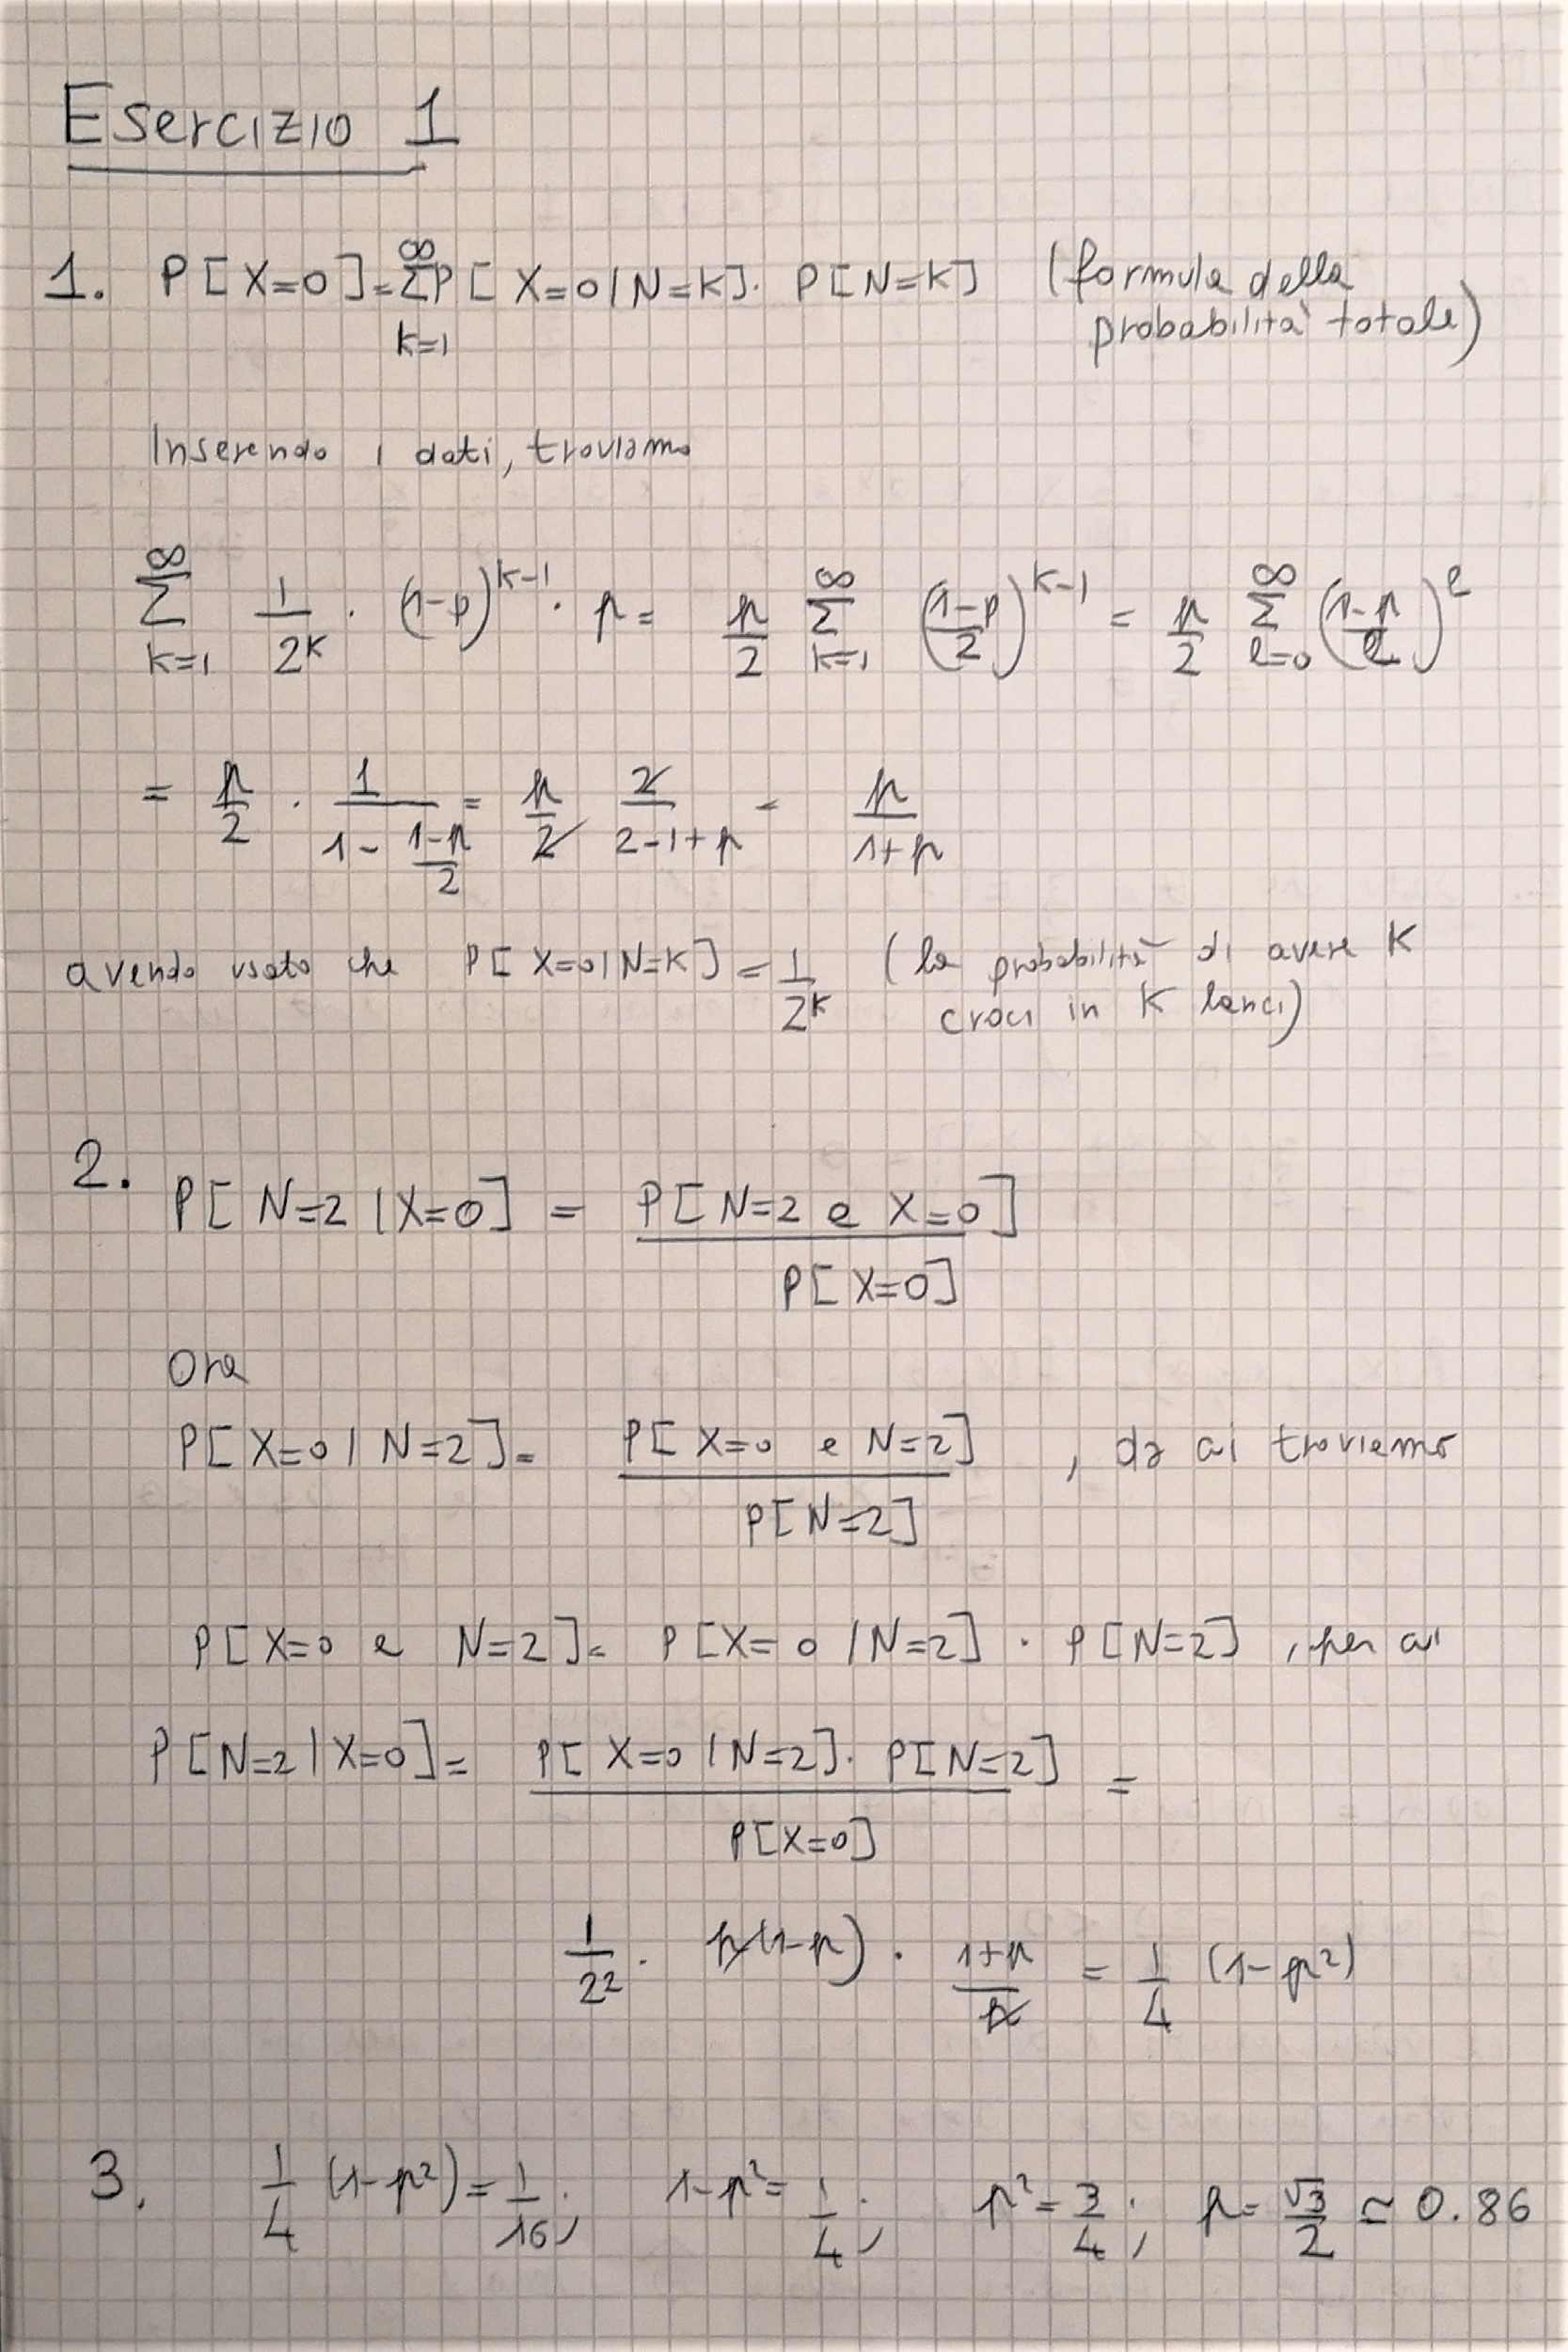 Esercizio 1
1. P[X=0]=∑_{k=1}^{∞} P[X=0|N=K]· P[N=K] (formula della
probabilità totale)
Inserendo i dati, troviamo
∑_{k=1}^{∞} 1/2^K · (1-p)^{K-1} · p = p/2 ∑_{k=1}^{∞} ((1-p)/2)^{K-1} = p/2 ∑_{l=0}^{∞} ((1-p)/2)^l
= p/2 · 1/(1-(1-p)/2) = p/2 2/(2-1+p) = p/(1+p)
avendo usato che P[X=0|N=K] = 1/2^K (la probabilità di avere K
croci in K lanci)
2. P[N=2|X=0] = P[N=2 e X=0] / P[X=0]
Ora
P[X=0|N=2] = P[X=0 e N=2] / P[N=2] , da cui troviamo
P[X=0 e N=2] = P[X=0|N=2] · P[N=2] , per cui
P[N=2|X=0] = P[X=0|N=2]· P[N=2] / P[X=0] =
1/2² · p(1-p) · (1+p)/p = 1/4 (1-p²)
3. 1/4 (1-p²) = 1/16; 1-p² = 1/4; p² = 3/4; p = √3/2 ≃ 0.86